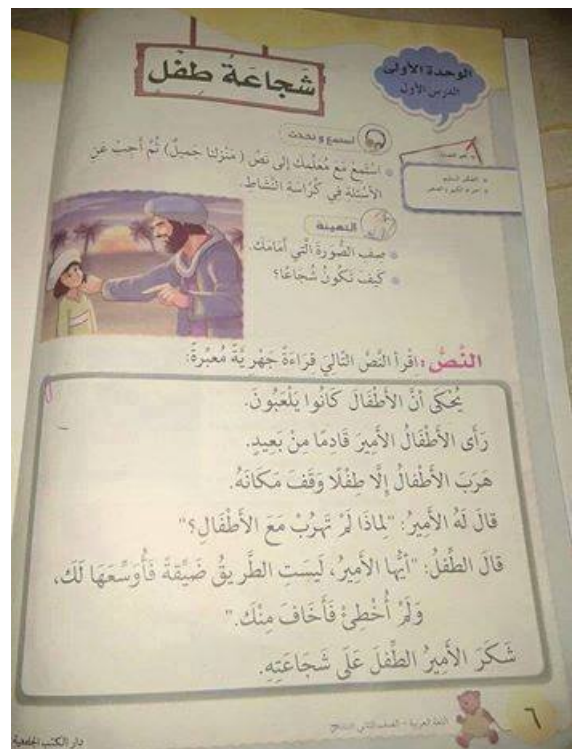 الوحدة الأولى
الدرس الأول
شَجَاعَةُ طِفْلٍ
أستمع وأتحدث
اسْتَمِعْ مَعَ مُعَلِّمِكَ إِلَى نَصِّ (مَنْزِلُنَا جَمِيلٌ) ثُمَّ أَجِبْ عَنِ
الأَسْئِلَةِ فِي كُرَّاسَةِ النَّشَاطِ.
التهيئة
صِفِ الصُّورَةَ الَّتِي أَمَامَكَ.
كَيْفَ تَكُونُ شُجَاعًا؟
النَّصُّ: اِقْرَأِ النَّصَّ التَّالِيَ قِرَاءَةً جَهْرِيَّةً مُعَبِّرَةً:
يُحْكَى أَنَّ الأَطْفَالَ كَانُوا يَلْعَبُونَ.
رَأَى الأَطْفَالُ الأَمِيرَ قَادِمًا مِنْ بَعِيدٍ.
هَرَبَ الأَطْفَالُ إِلَّا طِفْلًا وَقَفَ مَكَانَهُ.
قَالَ لَهُ الأَمِيرُ: "لِمَاذَا لَمْ تَهْرُبْ مَعَ الأَطْفَالِ؟"
قَالَ الطِّفْلُ: "أَيُّهَا الأَمِيرُ، لَيْسَتِ الطَّرِيقُ ضَيِّقَةً فَأُوَسِّعَهَا لَكَ،
وَلَمْ أُخْطِئْ فَأَخَافَ مِنْكَ."
شَكَرَ الأَمِيرُ الطِّفْلَ عَلَى شَجَاعَتِهِ.
٦
اللغة العربية - الصف الثاني
دار الكتب الجامعية